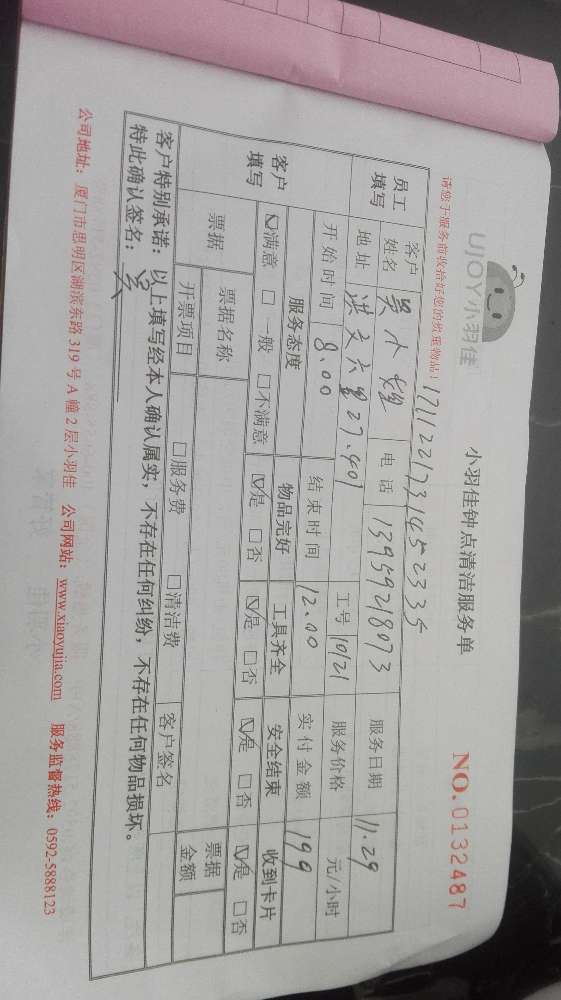 UJOY小羽佳
小羽佳钟点清洁服务单
NO.0132487
请您于服务前收拾好您的贵重物品!
171122173145 2335
员工填写 客户姓名 吴小煌 电话 13959218073 服务日期 11.29
地址 洪文六里27.401 工号 10121 服务价格 元/小时
开始时间 8.00 结束时间 12.00 实付金额 199
客户填写 服务态度 物品完好 工具齐全 安全结束 收到卡片
☑满意 □一般 □不满意 ☑是 □否 ☑是 □否 ☑是 □否 ☑是 □否
票据 票据名称 票据金额
开票项目 □服务费 □清洁费 客户签名
客户特别承诺:以上填写经本人确认属实,不存在任何纠纷,不存在任何物品损坏。
特此确认签名:吴
公司地址:厦门市思明区湖滨东路319号A幢2层小羽佳 公司网站:www.xiaoyujia.com 服务监督热线:0592-5888123